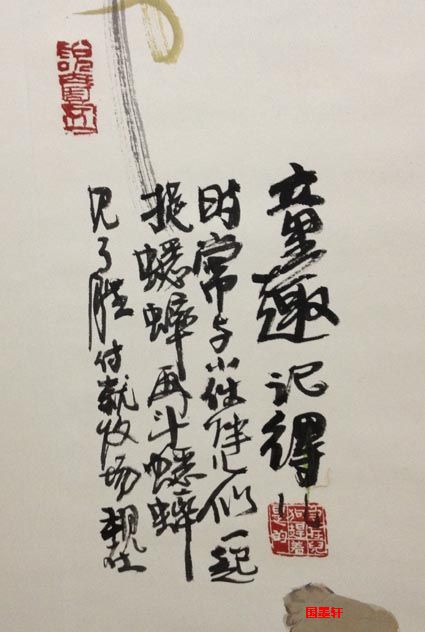 童趣记得小
时常与小伙伴儿们一起
捉蟋蟀再斗蟋蟀
见了胜付就收场
国墨轩